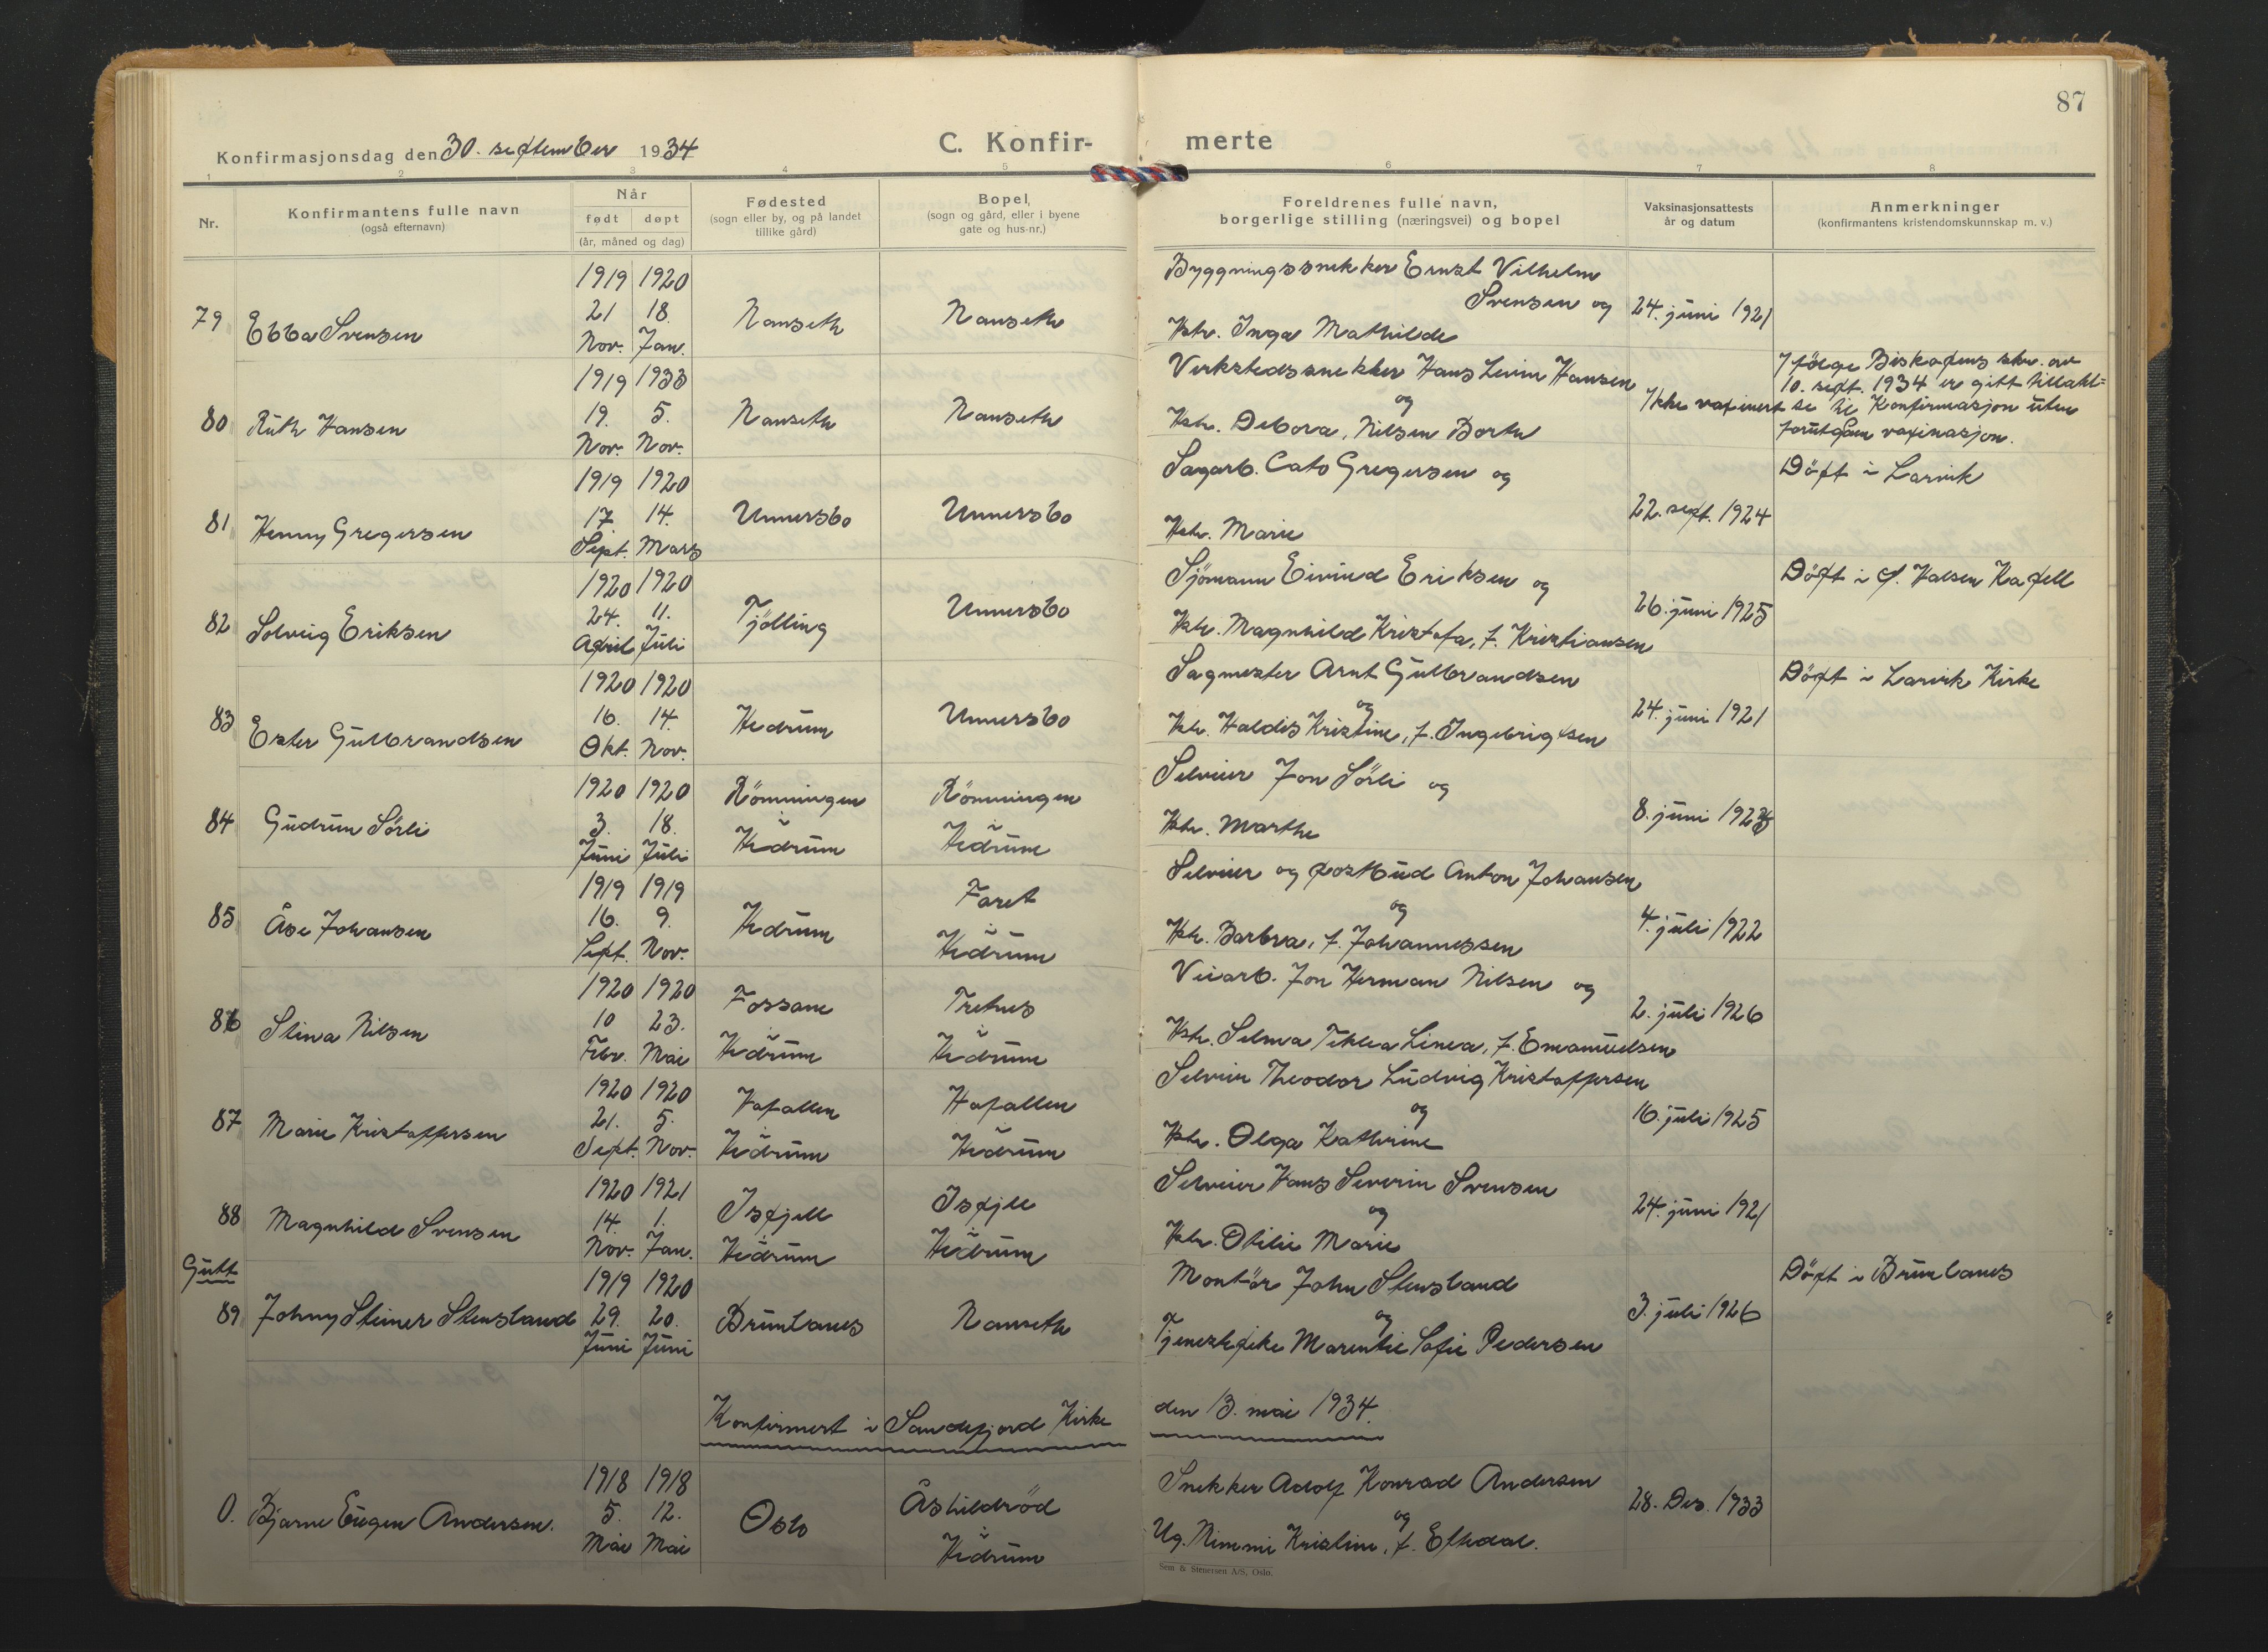 87
Konfirmasjonsdag den 30. september 1934
C. Konfir- merte
1 2 3 4 5 6 7 8
Nr.
Konfirmantens fulle navn
(også efternavn)
Når
født døpt
(år, måned og dag)
Fødested
(sogn eller by, og på landet
tillike gård)
Bopel,
(sogn og gård, eller i byene
gate og hus-nr.)
Foreldrenes fulle navn,
borgerlige stilling (næringsvei) og bopel
Vaksinasjonsattests
år og datum
Anmerkninger
(konfirmantens kristendomskunnskap m. v.)
1919 1920 Byggningssnekker Ernst Vilhelm
79 Ebba Svensen 21 18. Nanseth Nanseth Svensen og 24. juni 1921
Nov. Jan. Hstr. Inga Mathilde
1919 1933 Verkstedssnekker Hans Levin Hansen I følge Biskopens skr. av
10. sept. 1934 er gitt tillatl=
80 Ruth Hansen 19. 5. Nanseth Nanseth og Ikke vaxinert se til Konfirmasjon uten
Nov. Nov. Hstr. Debora, Nilsen Borth forutgåen vaxinasjon.
1919 1920 Sagarb. Cato Gregersen og Døpt i Larvik
81 Henny Gregersen 17. 14. Unnersbo Unnersbo 22. sept. 1924
Sept. Mars Hstr. Marie
1920 1920 Sjömann Eivind Eriksen og Döpt i Ø. Halsen Kapell
82 Solveig Eriksen 24. 11. Tjölling Unnersbo 26. juni 1925
April Juli Hstr. Magnhild Kristofa, f. Kristiansen
1920 1920 Sagmester Arnt Gulbrandsen Döpt i Larvik Kirke
83 Ester Gulbrandsen 16. 14. Hedrum Unnersbo og 24. juni 1921
Okt. Nov. Hstr. Haldis Kristine, f. Ingebrigtsen
1920 1920 Rönningen Rönningen Selveier Jon Sörli og
84 Gudrun Sörli 3. 18. i i 8. juni 192
Juni Juli Hedrum Hedrum Hstr. Marthe
1919 1919 Faret Selveier og postbud Anton Johansen
85 Åse Johansen 16. 9. Hedrum i og 4. juli 1922
Sept. Nov. Hedrum Hstr. Barbra, f. Johannessen
1920 1920 Fossane Trehus Veiarb. Jon Herman Nilsen og
86 Stina Nilsen 10 23. i i 2. juli 1926
Febr. Mai Hedrum Hedrum Hstr. Selma Teklea Linea, f. Emanuelsen
1920 1920 Hafallen Hafallen Selveier Theodor Ludvig Kristoffersen
87 Marie Kristoffersen 21. 5. i i og 16. juli 1925
Sept. Nov. Hedrum Hedrum Hstr. Olga Kathrine
1920 1921 Isfjell Isfjell Selveier Hans Severin Svensen
88 Magnhild Svensen 14. 1. i i og 24. juni 1921
Nov. Jan. Hedrum Hedrum Hstr. Otilie Marie
Gutt
1919 1920 Montör John Stensland Döpt i Brunlanes
89 Johny Steiner Stensland 29. 20. Brunlanes Nanseth og 3. juli 1926
Juni Juni Tjenestepike Marentie Sofie Pedersen
Konfirmert i Sandefjord Kirke den 13. mai 1934.
1918 1918 Åshildröd Snekker Adolf Konrad Andersen
0. Bjarne Eugen Andersen. 5. 12. Oslo i og 28. Des. 1933
Mai Mai Hedrum Ug. Mimmi Kristine, f. Eftedal.
Sem & Stenersen A/S, Oslo.